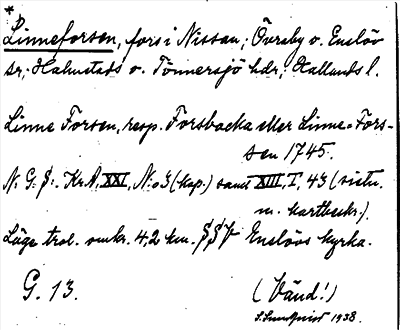 *
Linneforsen, fors i Nissan; Övraby o. Enslöv
sr; Halmstads o. Tönnersjö hdr; Hallands l.
Linne Forsen, resp. Forsbacka eller Linne-Fors-
sen 1745.
N: G: S: Kr. A, XXI, N:o 3 (kop.) samt XIII, I, 43 (vistn.
m. kartbeskr.).
Läge trol. omkr. 4,2 km. Enslövs kyrka.
G. 13.
(Vänd!)
1938.